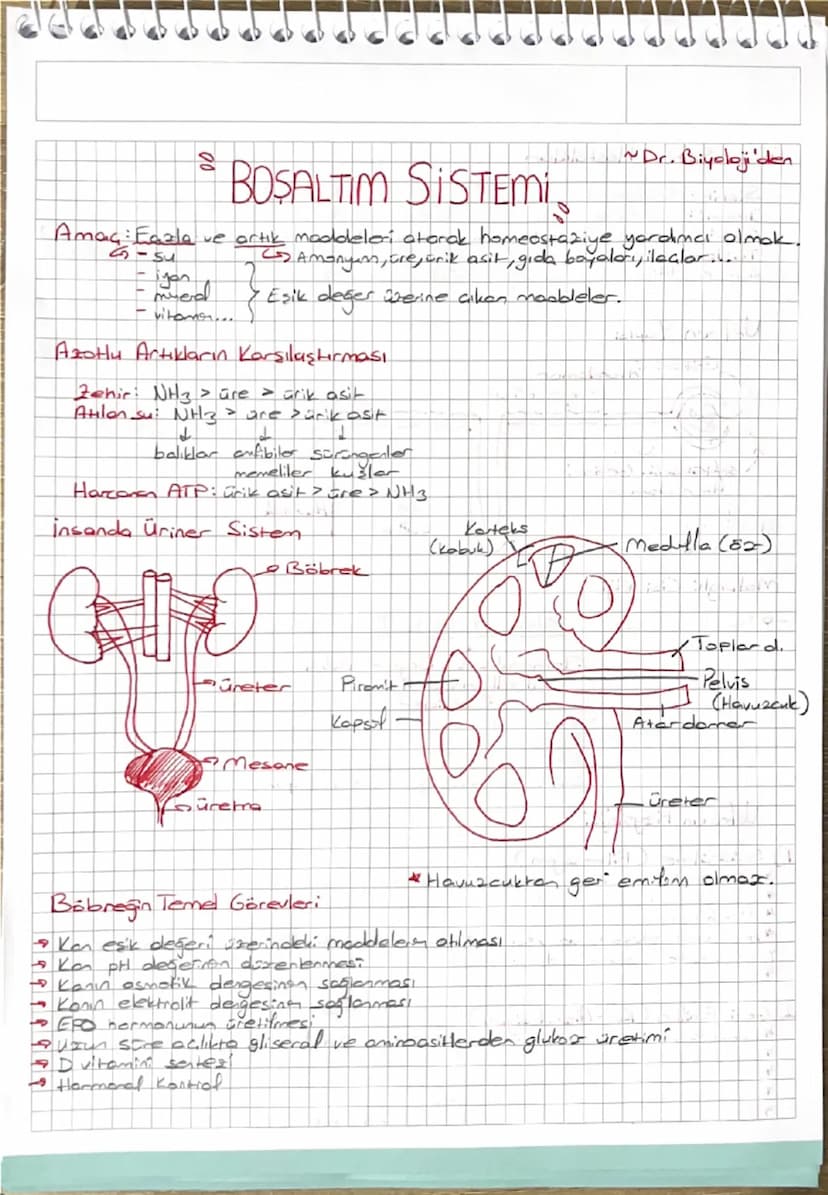 ~Dr. Biyoloji'den
BOŞALTIM SİSTEMİ
Amaç: Fazla ve artık maddeleri atarak homeostaziye yardımcı olmak.
- su
Amonyum, üre, ürik asit, gıda boyaları, ilaçlar...
- iyon
- mineral
- vitamin...
Eşik değer üzerine çıkan maddeler.
Azotlu Artıkların Karşılaştırması
Zehir: NH3 > üre > ürik asit
Atılan su: NH3 > üre > ürik asit
↓ ↓ ↓
balıklar amfibiler sürüngenler
memeliler kuşlar
Harcanan ATP: ürik asit > üre > NH3
İnsanda Üriner Sistem
Böbrek
üreter
Mesane
üretra
Korteks
(kabuk)
Medulla (öz)
Toplar d.
Piramit
Pelvis
(Havuzcuk)
Kapsül
Atardamar
üreter
* Havuzcuktan geri emilim olmaz.
Böbreğin Temel Görevleri
→ Kan eşik değeri üzerindeki maddelerin atılması
→ Kan pH değerinin düzenlenmesi
→ Kanın osmotik dengesinin sağlanması
→ Kanın elektrolit dengesinin sağlanması
→ EPO hormonunun üretilmesi
→ Uzun süre açlıkta gliserol ve aminoasitlerden glukoz üretimi
→ D vitamini sentezi
→ Hormonal Kontrol